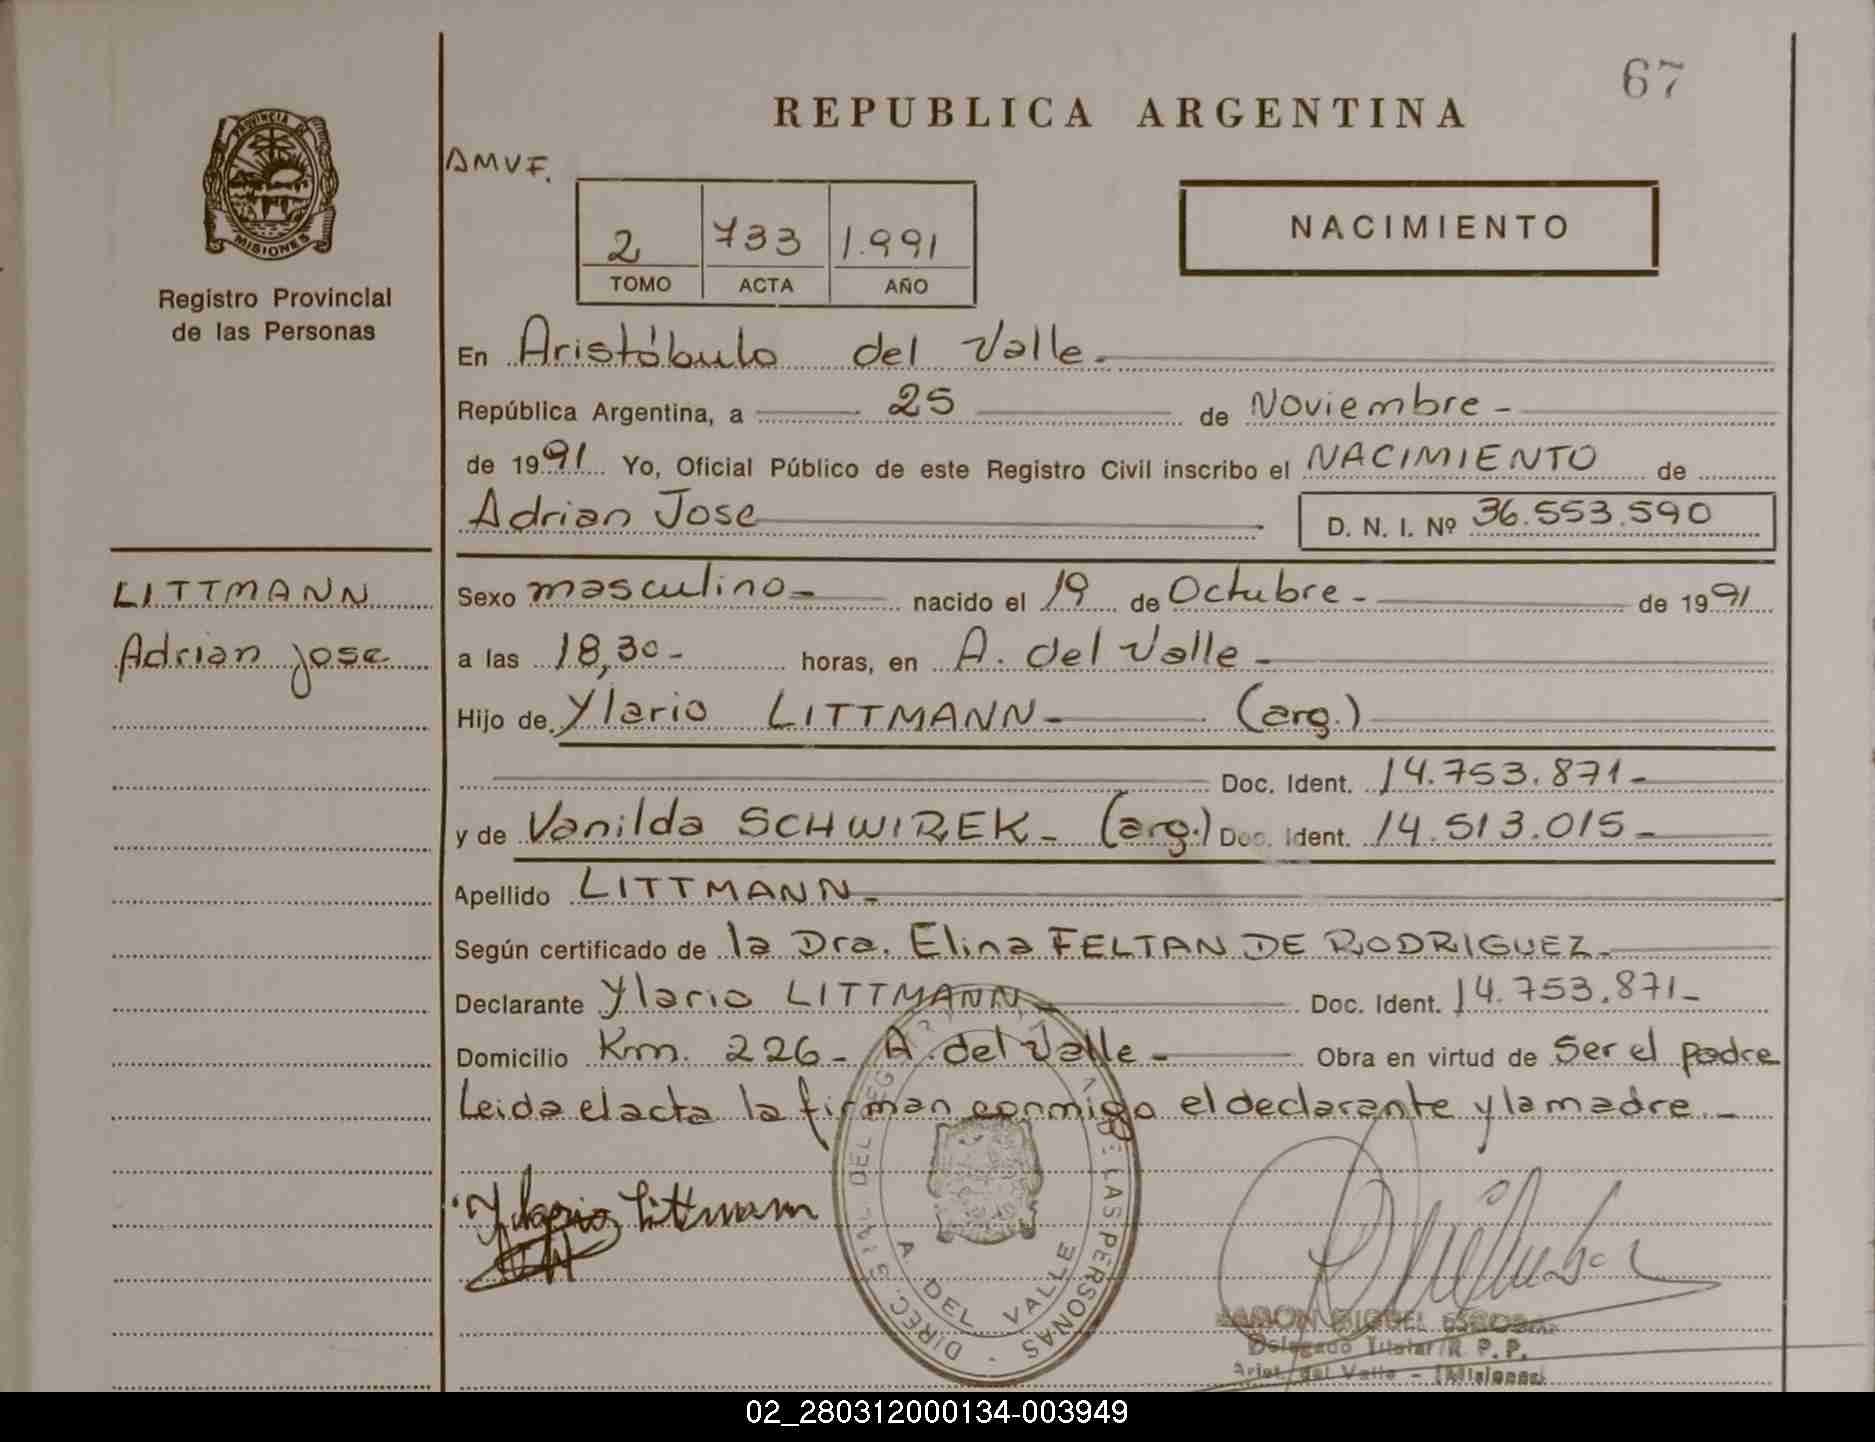 67
REPUBLICA ARGENTINA
PROVINCIA DE
MISIONES
Registro Provincial
de las Personas
AMVF.
2 733 1.991
TOMO ACTA AÑO
NACIMIENTO
En Aristóbulo del Valle.
República Argentina, a 25 de Noviembre -
de 1991 Yo, Oficial Público de este Registro Civil inscribo el NACIMIENTO de
Adrian Jose
D. N. I. Nº 36.553.590
LITTMANN
Adrian jose
Sexo masculino - nacido el 19 de Octubre - de 1991
a las 18,30 - horas, en A. del Valle -
Hijo de Ylario LITTMANN - (arg.)
Doc. Ident. 14.753.871 -
y de Vanilda SCHWIREK - (arg.) Doc. Ident. 14.513.015 -
Apellido LITTMANN -
Según certificado de la Dra. Elina FELTAN DE RODRIGUEZ -
Declarante Ylario LITTMANN - Doc. Ident. 14.753.871 -
Domicilio Km. 226 - A. del Valle - Obra en virtud de Ser el padre
Leida el acta la firman conmigo el declarante y la madre. -
Ylario Littmann
DIREC. DEL LAS PERSONAS
A DEL VALLE
RAMON MIGUEL ESCOBAR
Delegado Titular R. P. P.
Arist. del Valle - (Misiones)
02_280312000134-003949